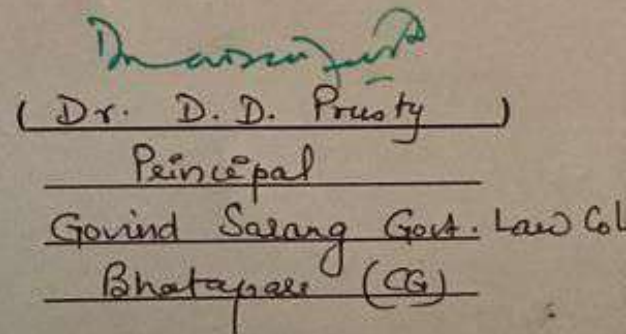 ( Dr. D.D. Prusty )
Principal
Govind Sarang Govt. Law Col
Bhatapara (CG)